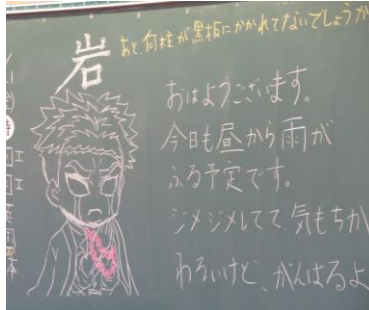 あと、何柱が黒板にかかれてないでしょうか
岩
おはようございます。
今日も昼から雨が
ふる予定です。
ジメジメしてて、気もちが
わるいけど、がんばるよ